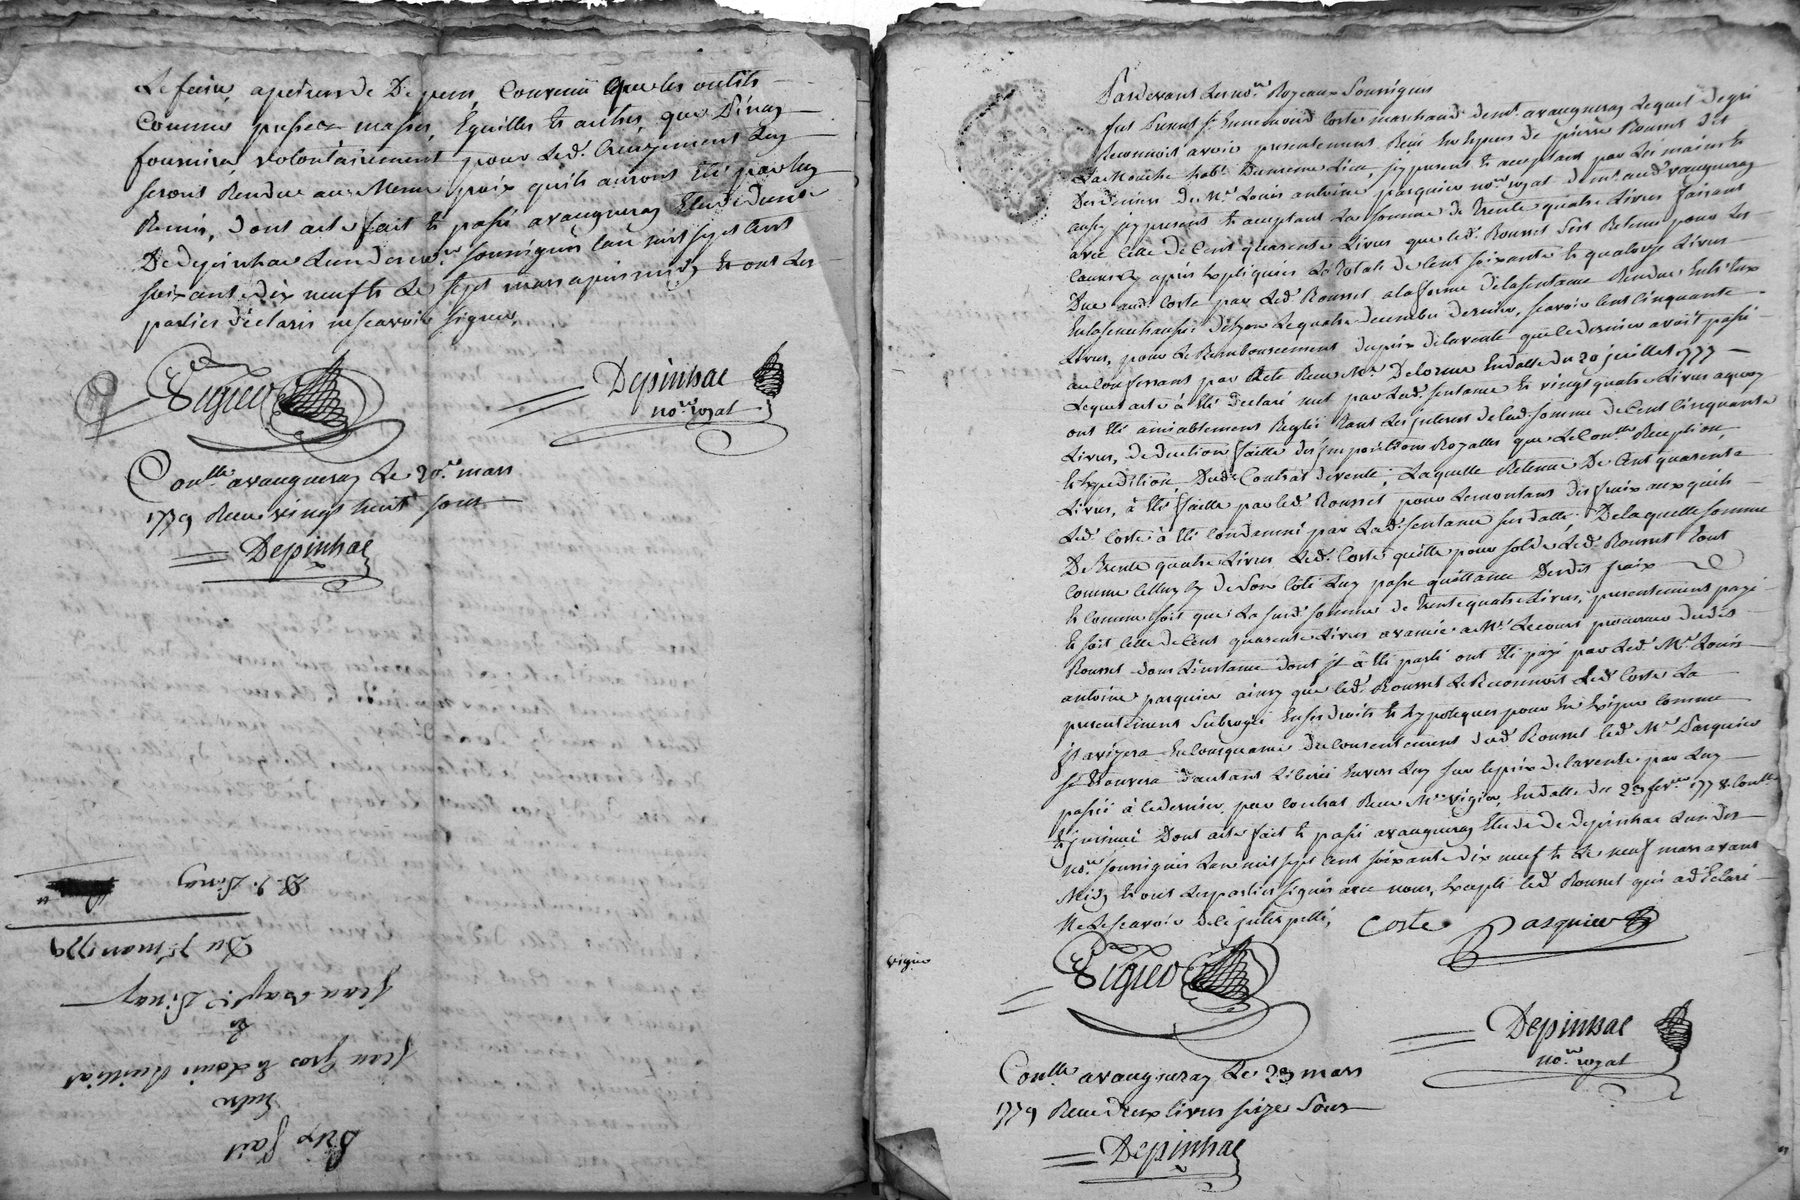 Le faire, a peine de De pens, Convenu que les outils
Comme presses masses, Eguilles et autres que Dinay
fournira volontairement pour led. Creuzement luy
seront Rendue au Meme poix qu'ils auront Eté par luy
Remis, dont acte fait et passé a vaugneray Etude dud.
Dedepinhac L'un des no.res soussignés l'an mil sept cent
soixante dix neuf et Le sept mars apres midy et ont Les
parties déclaré ne scavoir signer,
Vigier
Depinhac
no.re royal
Con.lle a vaugneray Le 20.e mars
1779 Recu vingt huit sous
Depinhac
Prix fait
Entre
Jean Gros et Louis
Et
Jean Bapt.e Dinay
Du 7.e mars 1779
D. J. Dinay
Pardevant Les no.res Royaux Soussignes
fut Present s.r Ennemond Coste marchand dem.t a vaugneray Lequel de gré
Reconnoit avoir presentement Recu En Especes de pierre Rousset dit
La Mouche hab.t Du meme Lieu jcy present et acceptant par Les mains et
Des deniers de M.e Louis antoine pasquier no.re royal dem.t aud. vaugneray
aussy jcy present et acceptant La somme de trente quatre Livres faisant
avec celle de Cent quarente Livres que led. Rousset s'est Retenu pour Les
Causes cy après Expliquées Le total de Cent soixante et quatorze Livres
Due aud. Coste par Led. Rousset, a la forme de la sentance Rendue Entr'Eux
En la senechaussée de Lyon Le quatre decembre dernier, scavoir Cent Cinquante
Livres, pour Le Remboursement du prix de la vente que le dernier avoit passé
au Confessant par Acte Recu M.e Delorme En datte du 20 juillet 1777
Lequel acte à Eté Declaré nul par Lad. sentance et vingt quatre Livres a quoy
ont Eté amiablement Reglés tant Les interets de lad. somme de Cent Cinquante
Livres, deduction faitte des jmpositions Royalles que Le Con.lle Reception,
et Expedition Dud. Contrat de vente; Laquelle Retenue De Cent quarente
Livres, à Eté faitte par led. Rousset pour Le montant des fraix auxquels
Led. Coste à Eté Condamné par Lad. sentance susdatté; De laquelle somme
De trente quatre Livres Led. Coste quitte pour solde Led. Rousset tout
Comme celluy cy de son Coté Luy passe quittance Desdits fraix
Et Comme soit que La susd. somme de trente quatre Livres, presentement payé
Et soit celle de Cent quarente Livres avancée a M.e Lecourt procureur dudit
Rousset dans L'instance dont jl à Eté parlé ont Eté payé par Led. M.e Louis
antoine pasquier ainsy que led. Rousset Le Reconnoit Led. Coste La
presentement Subrogé En ses droits et hypoteques pour En Exiger comme
jl avizera En Consequence Du Consentement dud. Rousset led. M.e Pasquier
se trouvera d'autant Liberé Envers Luy sur le prix de la vente par Luy
passée à ce dernier, par Contrat Recu M.e vigier, En datte du 23 fev.er 1778 Con.lle
Et jnsinué Dont acte fait et passé a vaugneray Etude De depinhac L'un des
no.res soussignés L'an mil sept Cent soixante dix neuf et Le neuf mars avant
Midy et ont Les parties signés avec nous, Excepté led. Rousset qui a déclaré
Ne Le scavoir de ce jnterpellé,
Coste
Pasquier
vigier
Vigier
Depinhac
no.re royal
Con.lle a vaugneray Le 23 mars
1779 Recu deux livres seize Sous
Depinhac